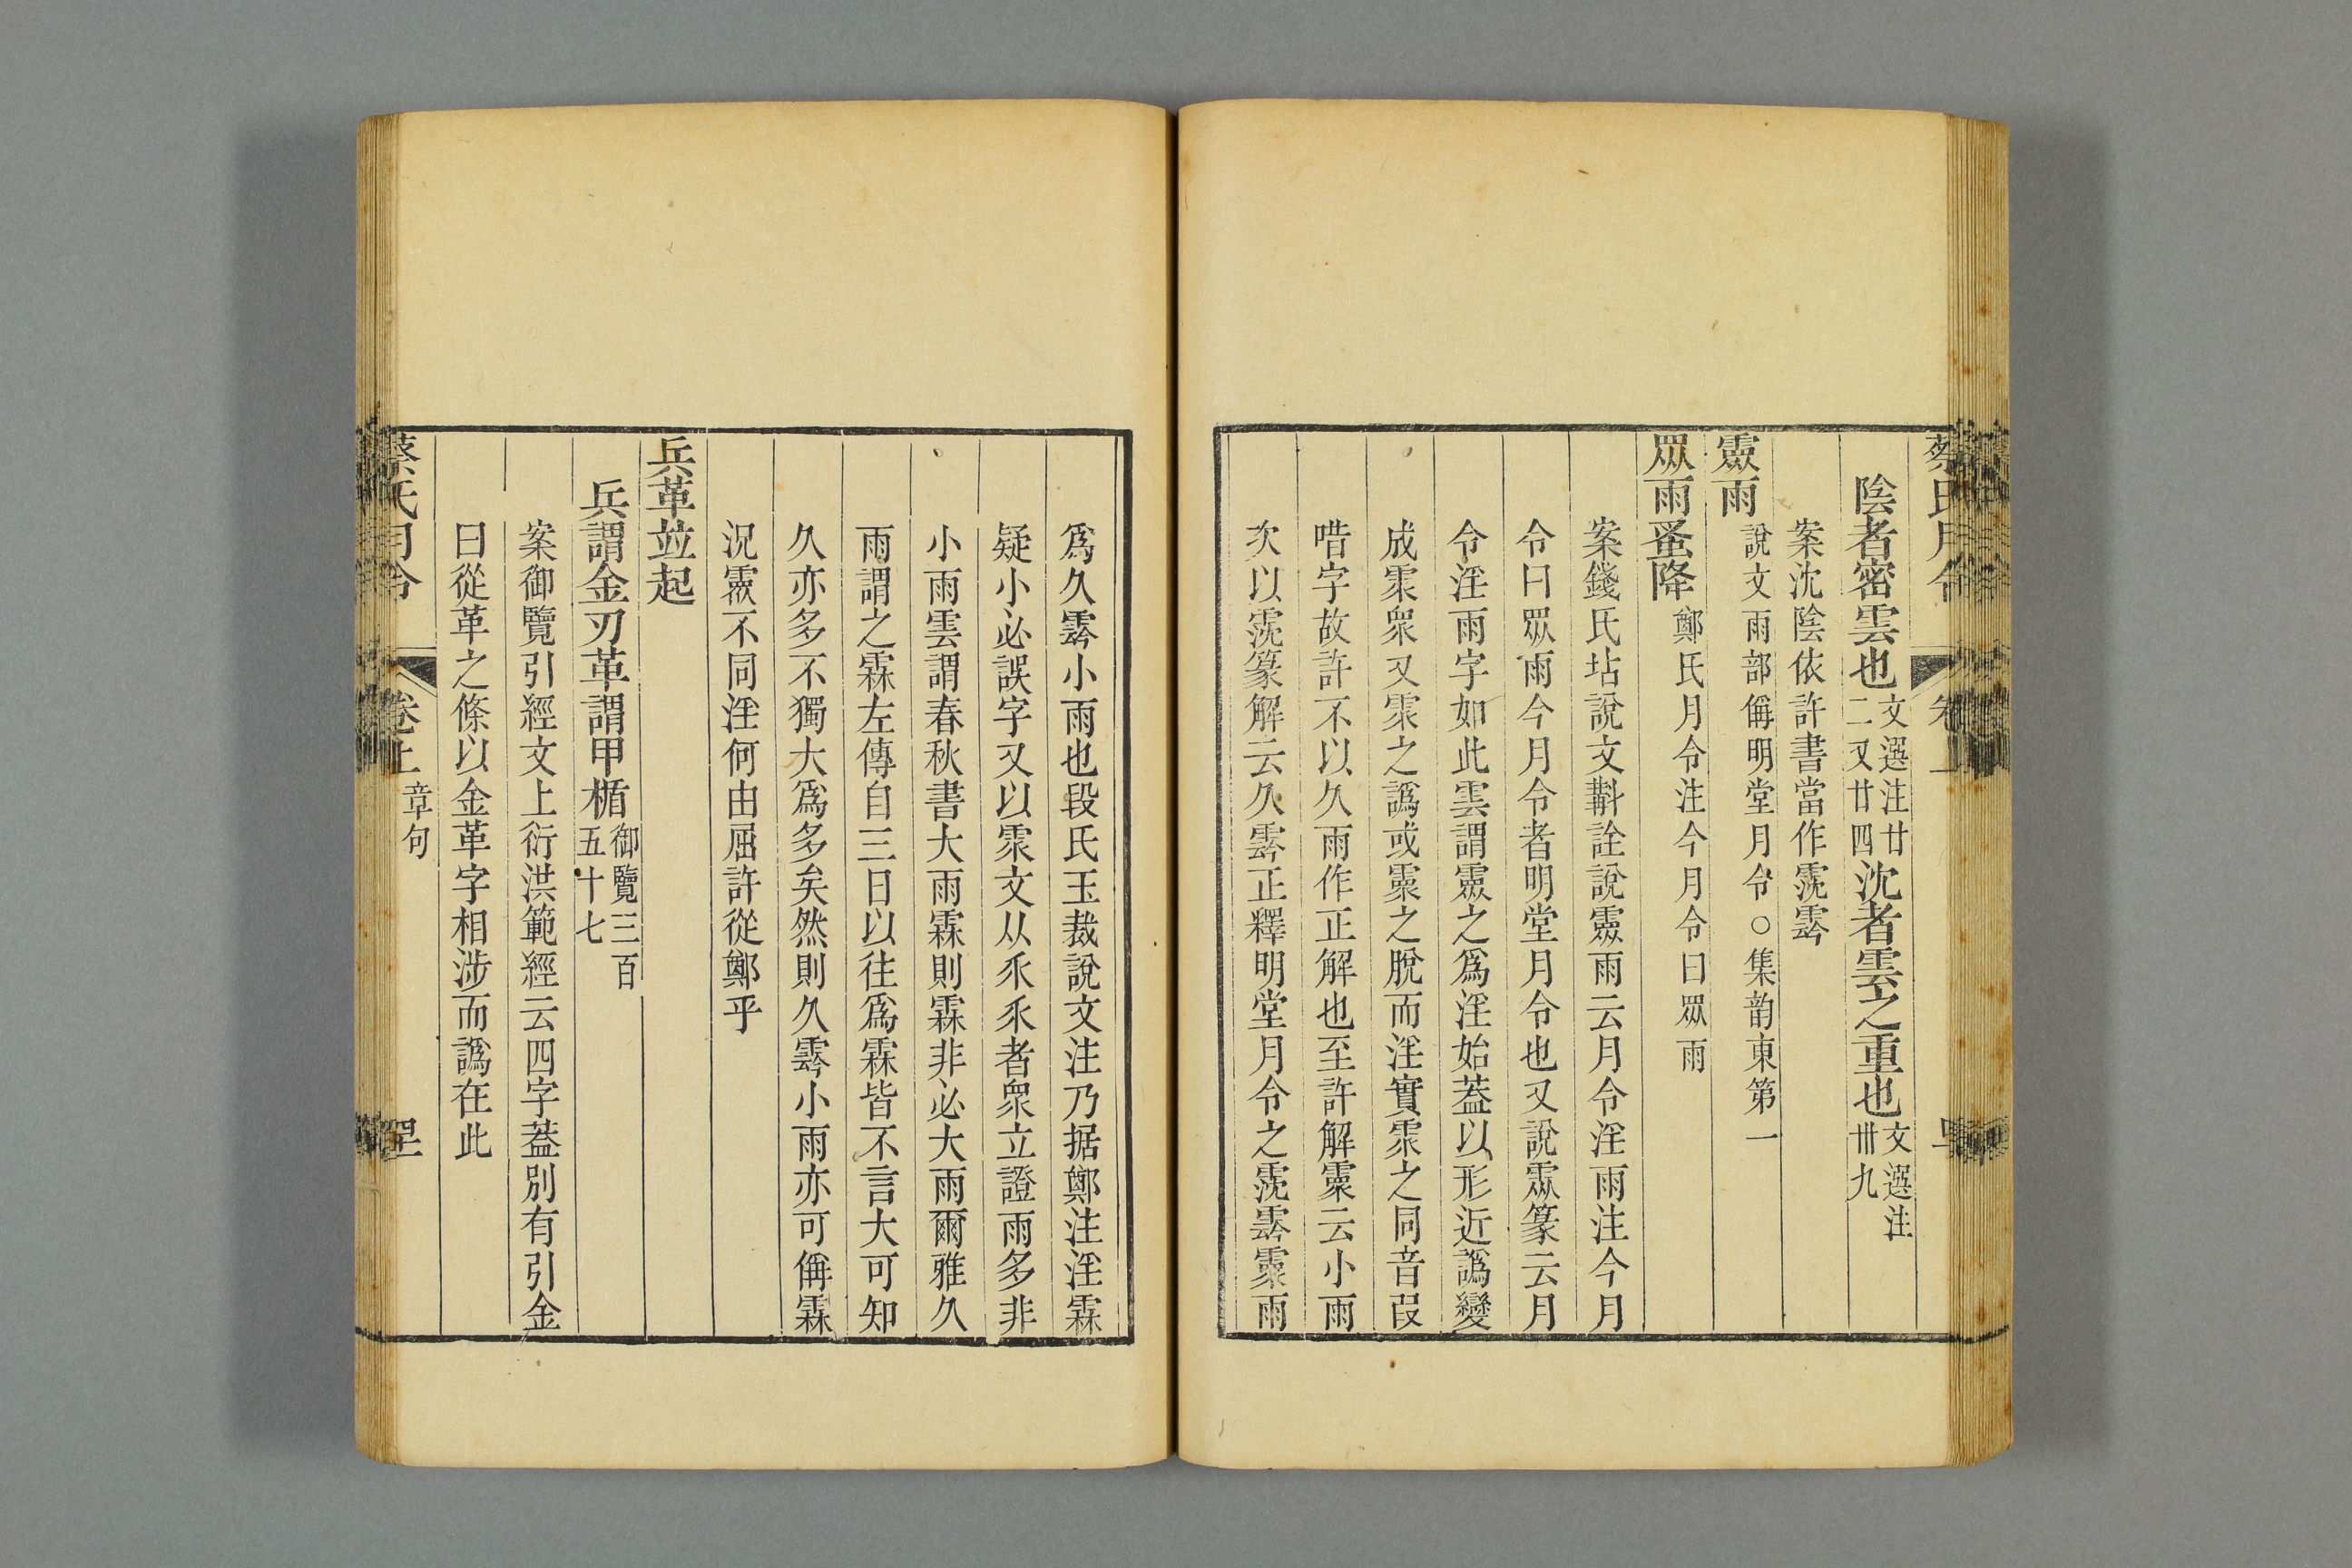 蔡氏月令
卷上
陰者密雲也文選注廿二又廿四沈者雲之重也文選注卌九
案沈陰依許書當作霃霒
霥雨說文雨部偁明堂月令○集韵東第一
眾雨蚤降鄭氏月令注今月令曰眾雨
案錢氏坫說文斠詮說霥雨云月令淫雨注今月
令曰眾雨今月令者明堂月令也又說霥篆云月
令淫雨字如此雲謂霥之爲淫始蓋以形近譌變
成霂眾又霂之譌或霥之脫而淫實霂之同音叚
唶字故許不以久雨作正解也至許解霥云小雨
次以霃篆解云久霒正釋明堂月令之霃霒霥雨
爲久霒小雨也段氏玉裁說文注乃据鄭注淫霖
疑小必誤字又以霥文从乑乑者眾立證雨多非
小雨雲謂春秋書大雨霖則霖非必大雨爾雅久
雨謂之霖左傳自三日以往爲霖皆不言大可知
久亦多不獨大爲多矣然則久霒小雨亦可偁霖
況霥不同淫何由屈許從鄭乎
兵革竝起
兵謂金刃革謂甲楯御覽三百五十七
案御覽引經文上衍洪範經云四字蓋別有引金
曰從革之條以金革字相涉而譌在此
蔡氏月令
卷上
章句